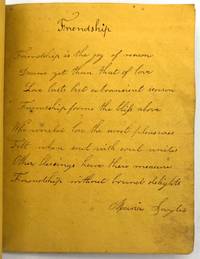 Friendship
Friendship is the joy of reason
Dearer yet than that of love
Love lasts but a transient season
Friendship forms the bliss above
Who would lose the sweet pleasures
Felt when soul with soul unites
Other blessings have their measure
Friendship without bound delights